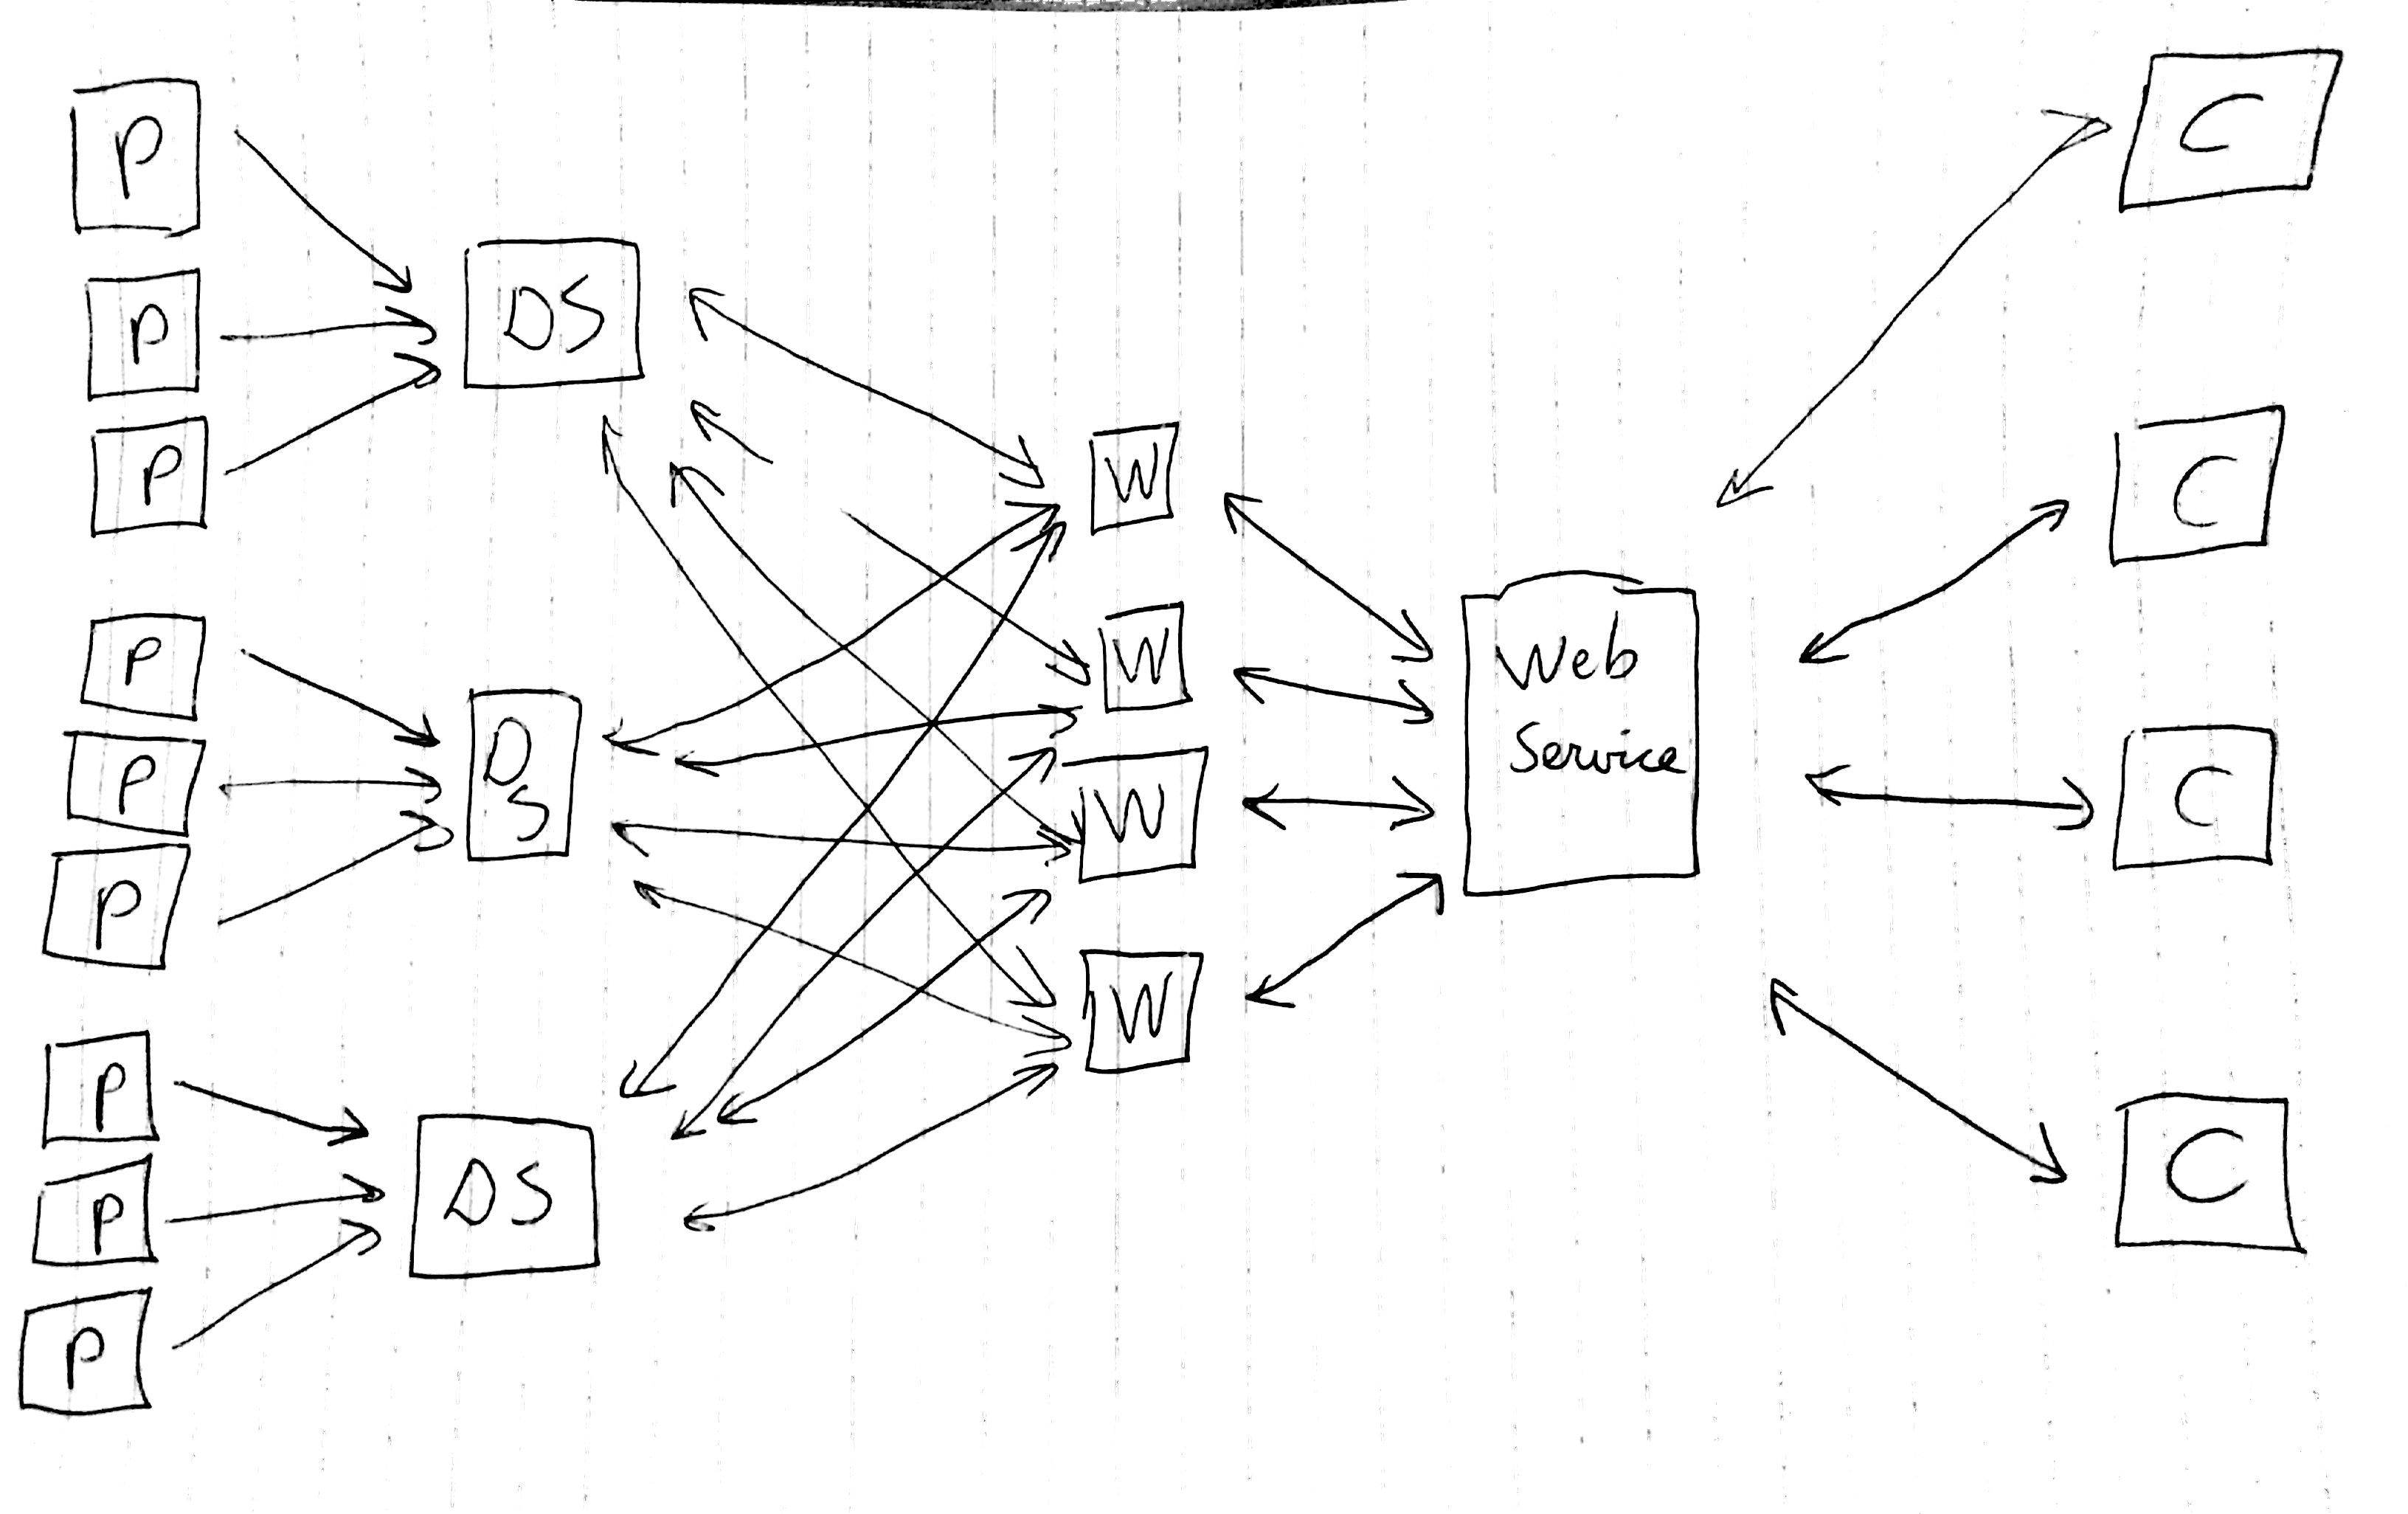 P
P
P
P
P
P
P
P
P
DS
D
S
DS
W
W
W
W
Web
Service
C
C
C
C